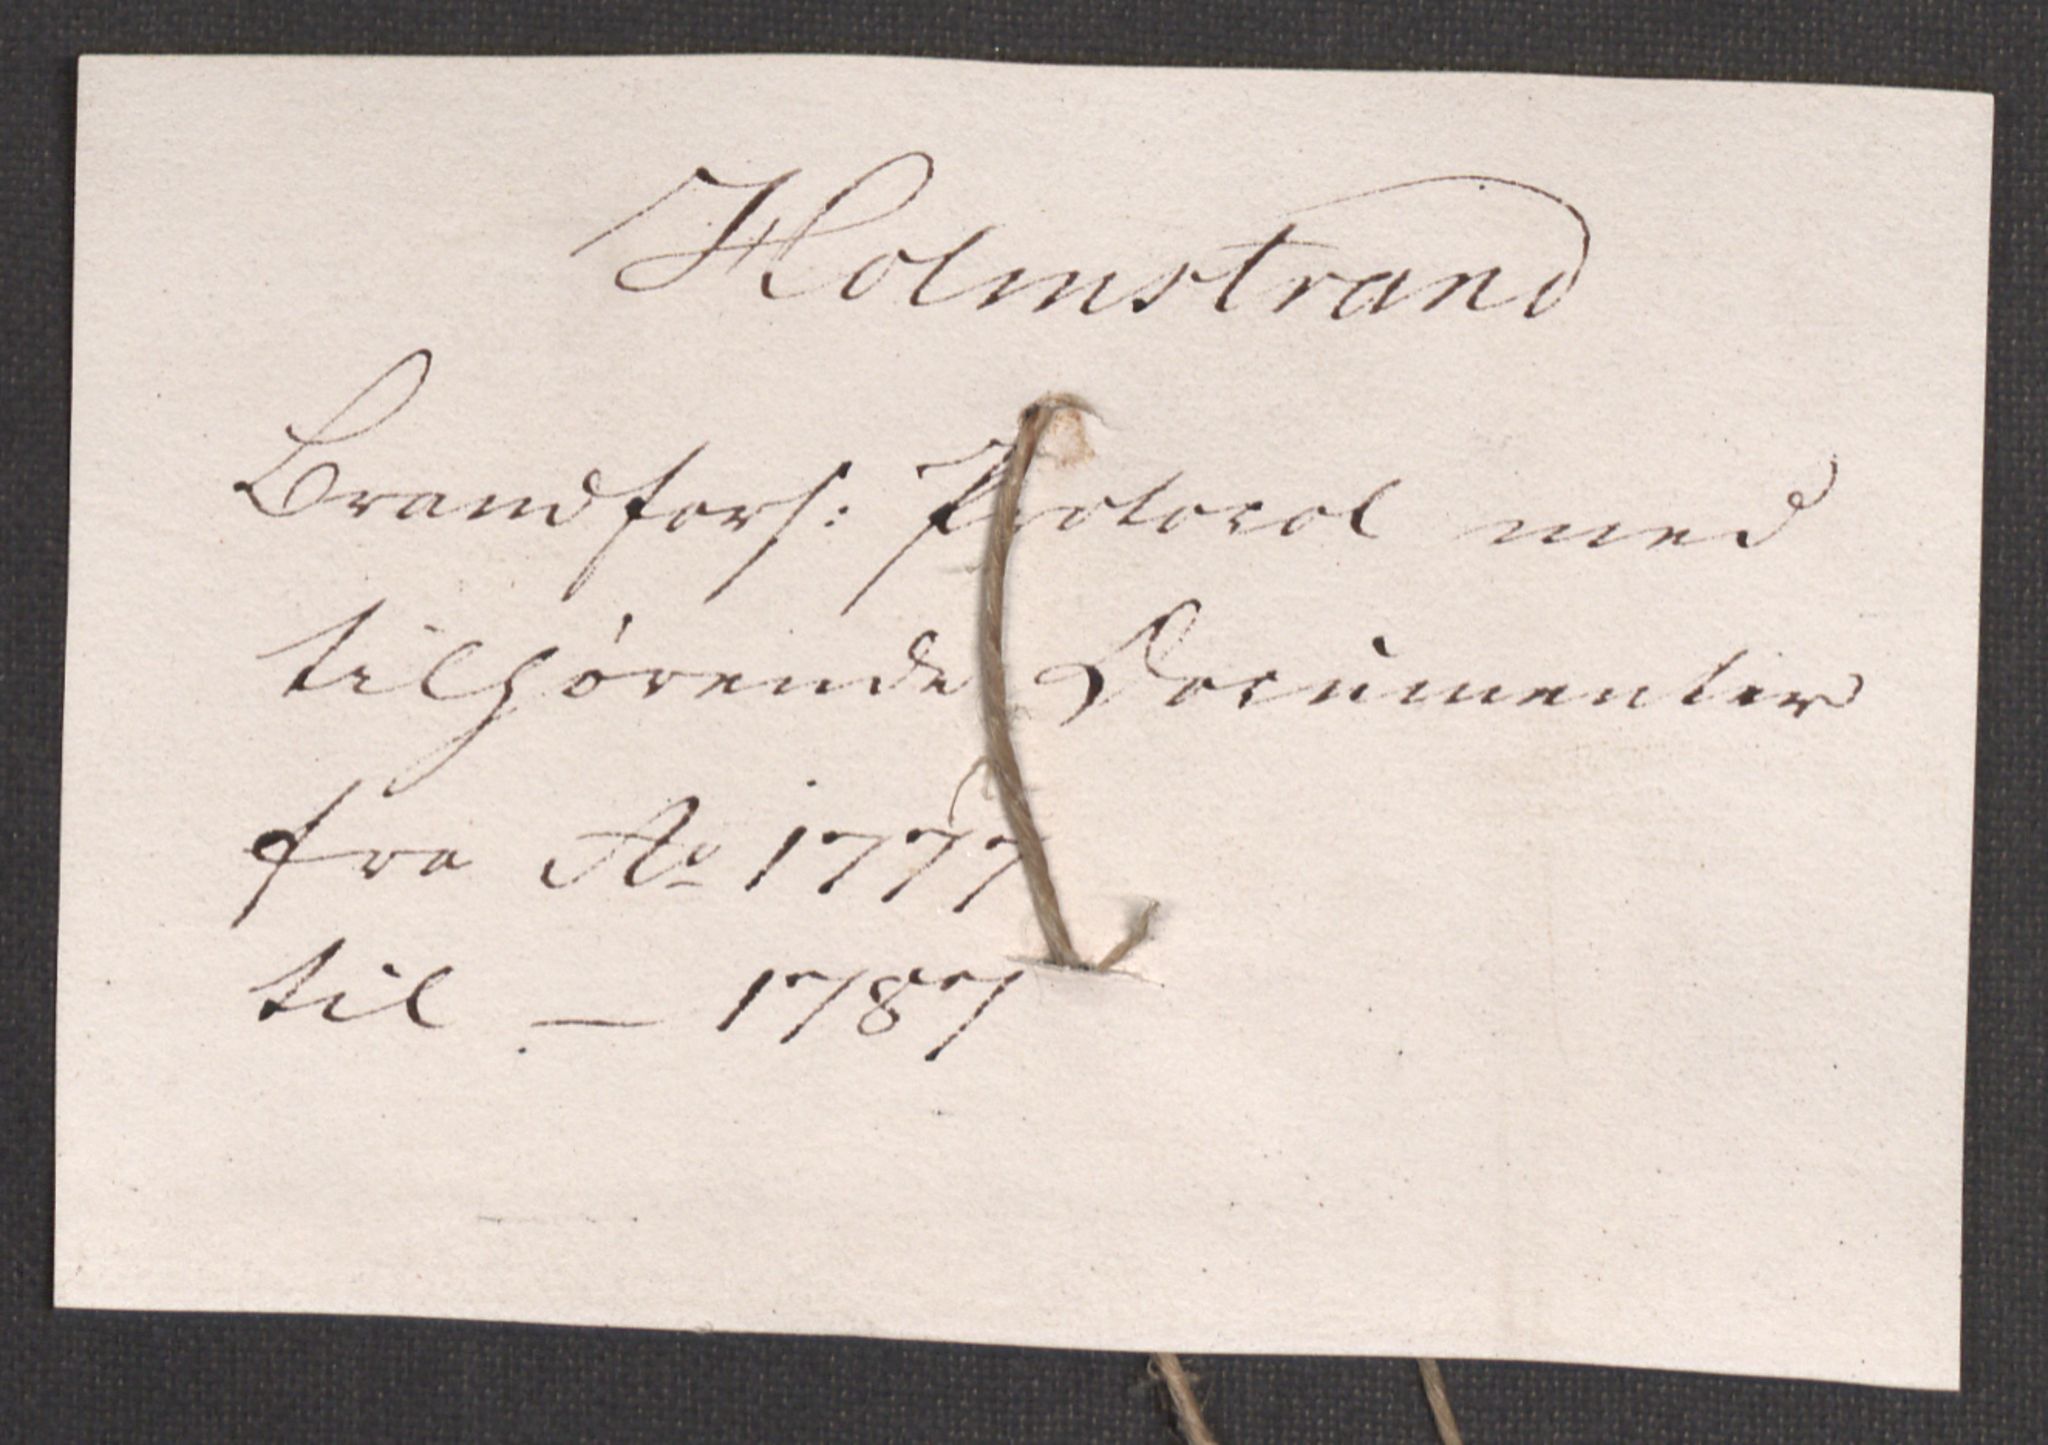 Holmstrand
Brandfors: Protocol med
tilhørende Documenter
fra Ao 1777
til — 1787